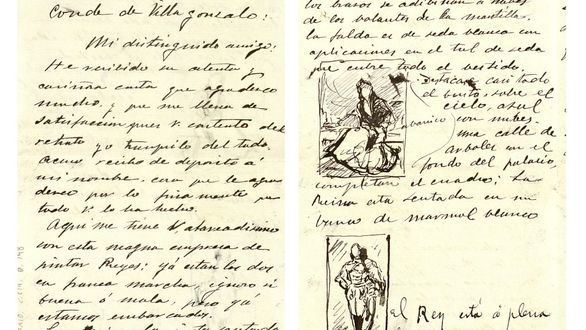 Conde de Villagonzalo:
Mi distinguido amigo:
He recibido su atenta y
cariñosa carta que agradezco
mucho, y que me llena de
satisfacción pues V. contento del
retrato yo tranquilo del todo.
Acuso recibo de deposito á
mi nombre, cosa que le agra
dezco por lo finamente que
todo V. lo ha hecho.
Aqui me tiene V. atareadisimo
con esta magna empresa de
pintar Reyes: yá estan los dos
en franca marcha, ignoro si
buena ó mala, pero yá
estamos embarcados.
sentada
los brazos se adivinan á traves
de los volantes de la mantilla.
La falda es de seda blanca con
aplicaciones en el tul de seda
que cubre todo el vestido.
Destacan casi todo
el busto, sobre el
cielo, azul
con nubes.
una calle de
arboles en el
fondo del palacio,
completan el cuadro; La
Reina está sentada en un
banco de marmol blanco
el Rey está á plena